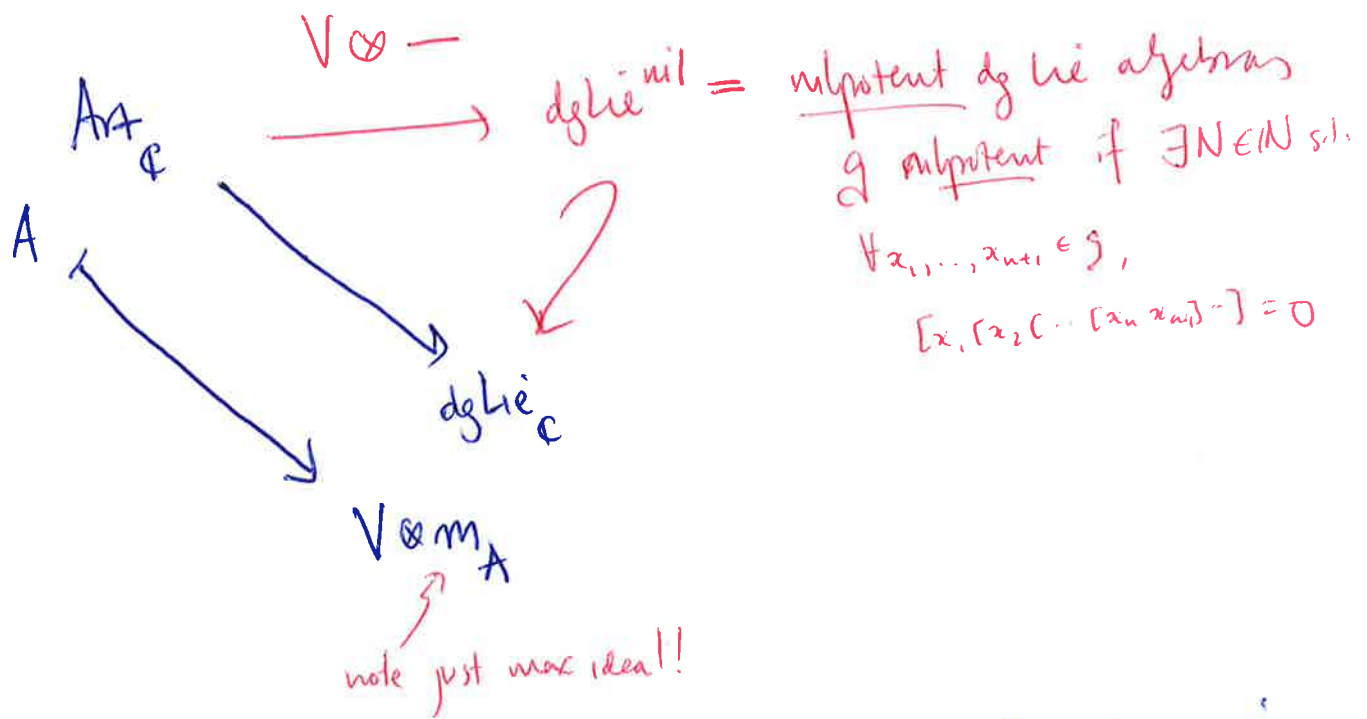 V ⊗ —
Art_ℂ → dgLie^nil = nilpotent dg Lie algebras
g nilpotent if ∃N∈ℕ s.t.
A
∀x₁,..,xₙ₊₁ ∈ g,
[x₁[x₂[··[xₙ xₙ₊₁]··] = 0
dgLie_ℂ
V ⊗ m_A
note just max ideal!!